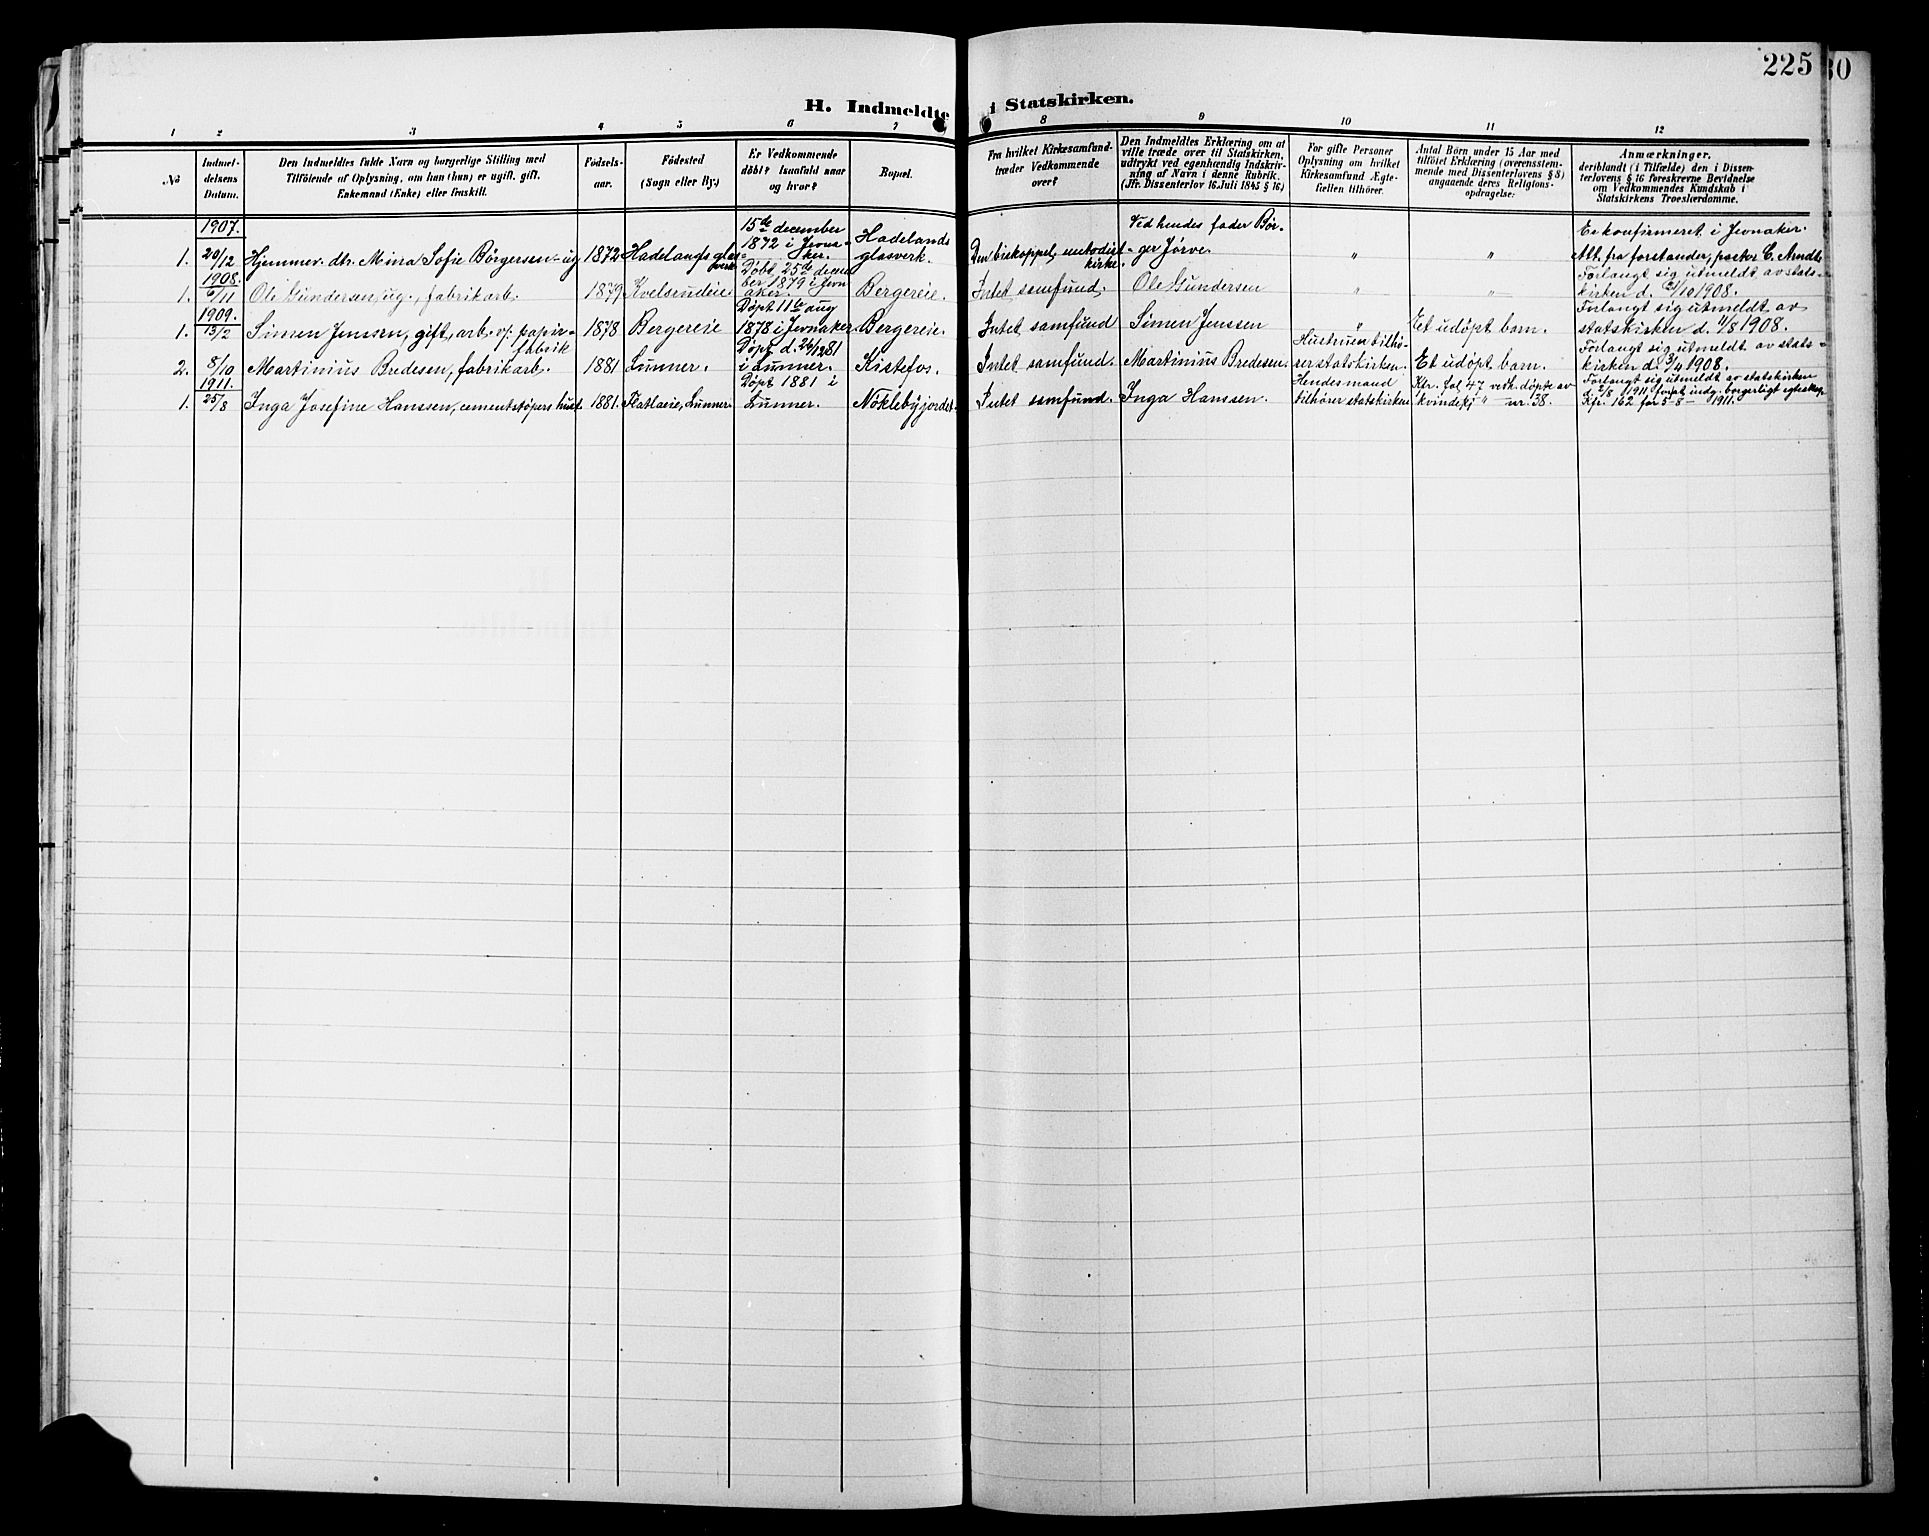 225
30
H. Indmeldte i Statskirken.
1 2 3 4 5 6 7 8 9 10 11 12
No
Indmel-
delsens
Datum.
Den Indmeldtes fulde Navn og borgerlige Stilling med
Tilföiende af Oplysning, om han (hun) er ugift, gift,
Enkemand (Enke) eller fraskilt.
Födsels-
aar.
Födested
(Sogn eller By.)
Er Vedkommende
döbt? Isaafald naar
og hvor?
Bopæl.
Fra hvilket Kirkesamfund
træder Vedkommende
over?
Den Indmeldtes Erklæring om at
ville træde over til Statskirken,
udtrykt ved egenhændig Indskriv-
ning af Navn i denne Rubrik.
(Jfr. Dissenterlov 16. Juli 1845 § 16)
For gifte Personer
Oplysning om hvilket
Kirkesamfund Ægte-
fællen tilhörer.
Antal Börn under 15 Aar med
tilföiet Erklæring (overensstem-
mende med Dissenterlovens § 8)
angaaende deres Religions-
opdragelse:
Anmærkninger.
deriblandt (i Tilfælde) den i Dissen-
terlovens § 16 foreskrevne Bevidnelse
om Vedkommendes Kundskab i
Statskirkens Troeslærdomme.
1907.
1. 20/12 Hjemmev. dtr. Mina Sofie Börgersen - ug 1872 Hadelands glas-
verk
15de december
1872 i Jevna-
ker.
Hadelands
glasverk.
Den biskoppel. metodist-
kirke.
Ved hendes fader Bör-
ger Jørve. " "
Er konfirmeret i Jevnaker.
Att. fra forstander, pastor C. Arndt.
1908.
1. 6/11 Ole Gundersen, ug., fabrikarb. 1879 Kvelsrudeie
Döbt 25de decem
ber 1879 i Jevn
aker.
Bergereie. Intet samfund. Ole Gundersen " "
Forlangt sig utmeldt av stats-
kirken d. /10 1908.
1909.
1. 13/2 Simen Jenssen, gift, arb. v/: papir-
fabrik
1878 Bergereie
Døpt 11te aug
1878 i Jevnaker
Bergereie. Intet samfund Simen Jenssen " Et udøpt barn.
Forlangt sig utmeldt av
statskirken d. /8 1908.
2. 8/10 Martinius Bredesen, fabrikarb. 1881 Lunner.
Døpt d. 26/12 81
i Lunner.
Kistefos. Intet samfund. Martinius Bredesen.
Hustruen tilhö-
rer statskirken.
Et udøpt barn.
Forlangt sig utmeldt av stats-
kirken d. 3/4 1908.
1911.
1. 25/8 Inga Josefine Hanssen, cementstøpers hust. 1881. Flatlaeie, Lunner
Døpt 1881 i
Lunner.
Nöklebyjordet. Intet samfund. Inga Hanssen.
Hendes mand
tilhører statskirken
Kfr. fol. 47 vedk. døpte av
kvindekj " — nr. 38.
Forlangt sig utmeldt av statskirken
d. 2/8 1911, forat indg. borgerligt egteskap
Kfr. 162 for 5-8-1911.